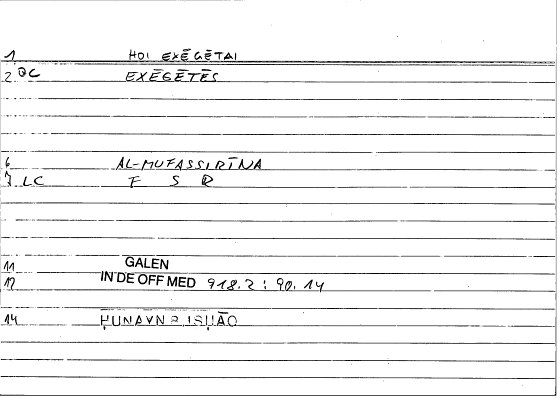 1 HOI EXĒGĒTAI
2 QC EXĒGĒTĒS
6 AL-MUFASSIRĪNA
7 LC F S R
11 GALEN
12 IN DE OFF MED 918.2 : 90.14
14 ḤUNAYN B ISḤĀQ